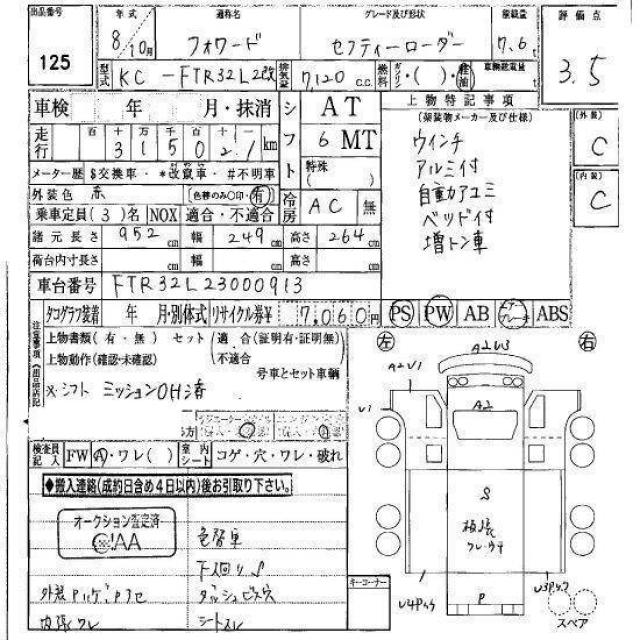 出品番号
125
年式
8/10月
通称名
フォワード
グレード及び形状
セフティーローダー
積載量
7.6t
評価点
3.5
型式
KC-FTR32L2改
排気量
7,120 c.c.
燃料
ガソリン・( )・軽油
車検 年 月・抹消
シフト
AT
6 MT
特殊
( )
走行
百 十 万 千 百 十 一
315021 km
メーター歴 $交換車・*改竄車・#不明車
外装色 赤
(色替のみ○印・有)
冷房
AC 無
乗車定員(3)名 NOX 適合・不適合
諸元長さ 952 cm 幅 249 cm 高さ 264 cm
荷台内寸長さ cm 幅 cm 高さ cm
車台番号 FTR32L23000913
上物特記事項
(架装物メーカー及び仕様)
ウインチ
アルミ付
自動アユミ
ベッド付
増トン車
(外装)
C
(内装)
C
タコグラフ装着 年 月・別体式 リサイクル券¥ 7,060円
PS PW AB エアーブレーキ ABS
注意事項
上物書類(有・無) セット(適合(証明有・証明無)
上物動作(確認・未確認) 不適合
号車とセット車輌
※シフト ミッションOH済
検査員記入
FW A・ワレ( )
室内シート
コゲ・穴・ワレ・破れ
◆搬入連絡(成約日含め4日以内)後お引取り下さい。
オークション査定済
JAA
色替車
下回りS
ダッシュビス穴
シートスレ
内張ワレ
キーコーナー
左
右
A2U3
A2U1
U1
A2
S
板張
P
スペア